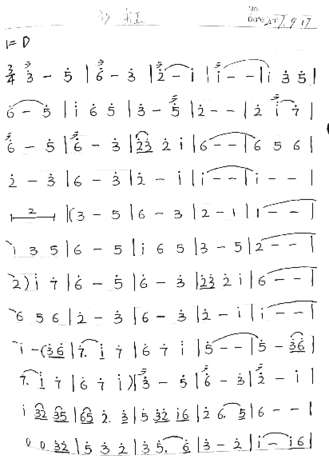 1=D
3/4 3̇ - 5̇ | 6̇ - 3̇ | 2̇ - i | i - - | i 3̇ 5̇ |
6̇ - 5̇ | i 6̇ 5̇ | 3̇ - 5̇ | 2̇ - - | 2̇ i 7̇ |
6̇ - 5̇ | 6̇ - 3̇ | 2̇3̇ 2̇ i | 6 - - | 6 5 6 |
2̇ - 3̇ | 6 - 3̇ | 2̇ - i | i - - | i - - |
2 | (3 - 5 | 6 - 3 | 2 - 1 | 1 - - |
1 3 5 | 6 - 5 | i 6 5 | 3 - 5 | 2 - - |
2) i 7̇ | 6̇ - 5̇ | 6̇ - 3̇ | 2̇3̇ 2̇ i | 6 - - |
6 5 6 | 2̇ - 3̇ | 6 - 3̇ | 2̇ - i | i - - |
i - (3̇6̇ | 7̇. i 7̇ | 6̇ 7̇ i | 5̇ - - | 5̇ - 3̇6̇ |
7̇. i 7̇ | 6̇ 7̇ i) | 3̇ - 5̇ | 6̇ - 3̇ | 2̇ - i |
i 3̇2̇ 3̇5̇ | 6̇5̇ 2̇. 3̇ | 5̇ 3̇2̇ i6 | 2̇ 6. 5̇ | 6 - - |
0 0 3̇2̇ | 5̇ 3̇ 2̇ | 3̇ 5̇. 6̇ | 3̇ - 2̇ | i - i6 |